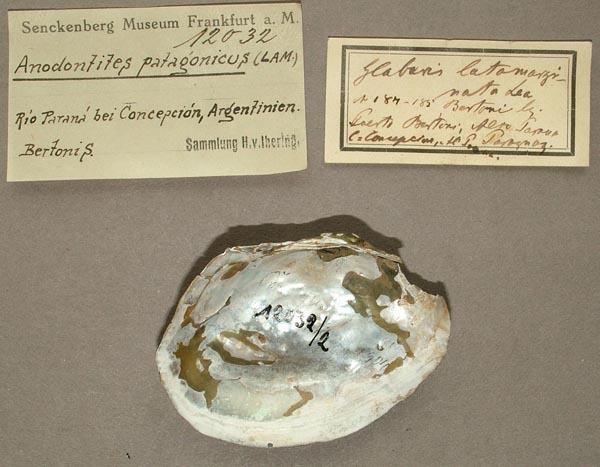 Senckenberg Museum Frankfurt a. M.
12032
Anodontites patagonicus (LAM.)
Río Paraná bei Concepción, Argentinien.
Bertoni S.
Sammlung H.v.Ihering.
Glabaris latomargi-
nata Lea
Bertoni
Puerto Bertoni, Alto Parana
12032/2